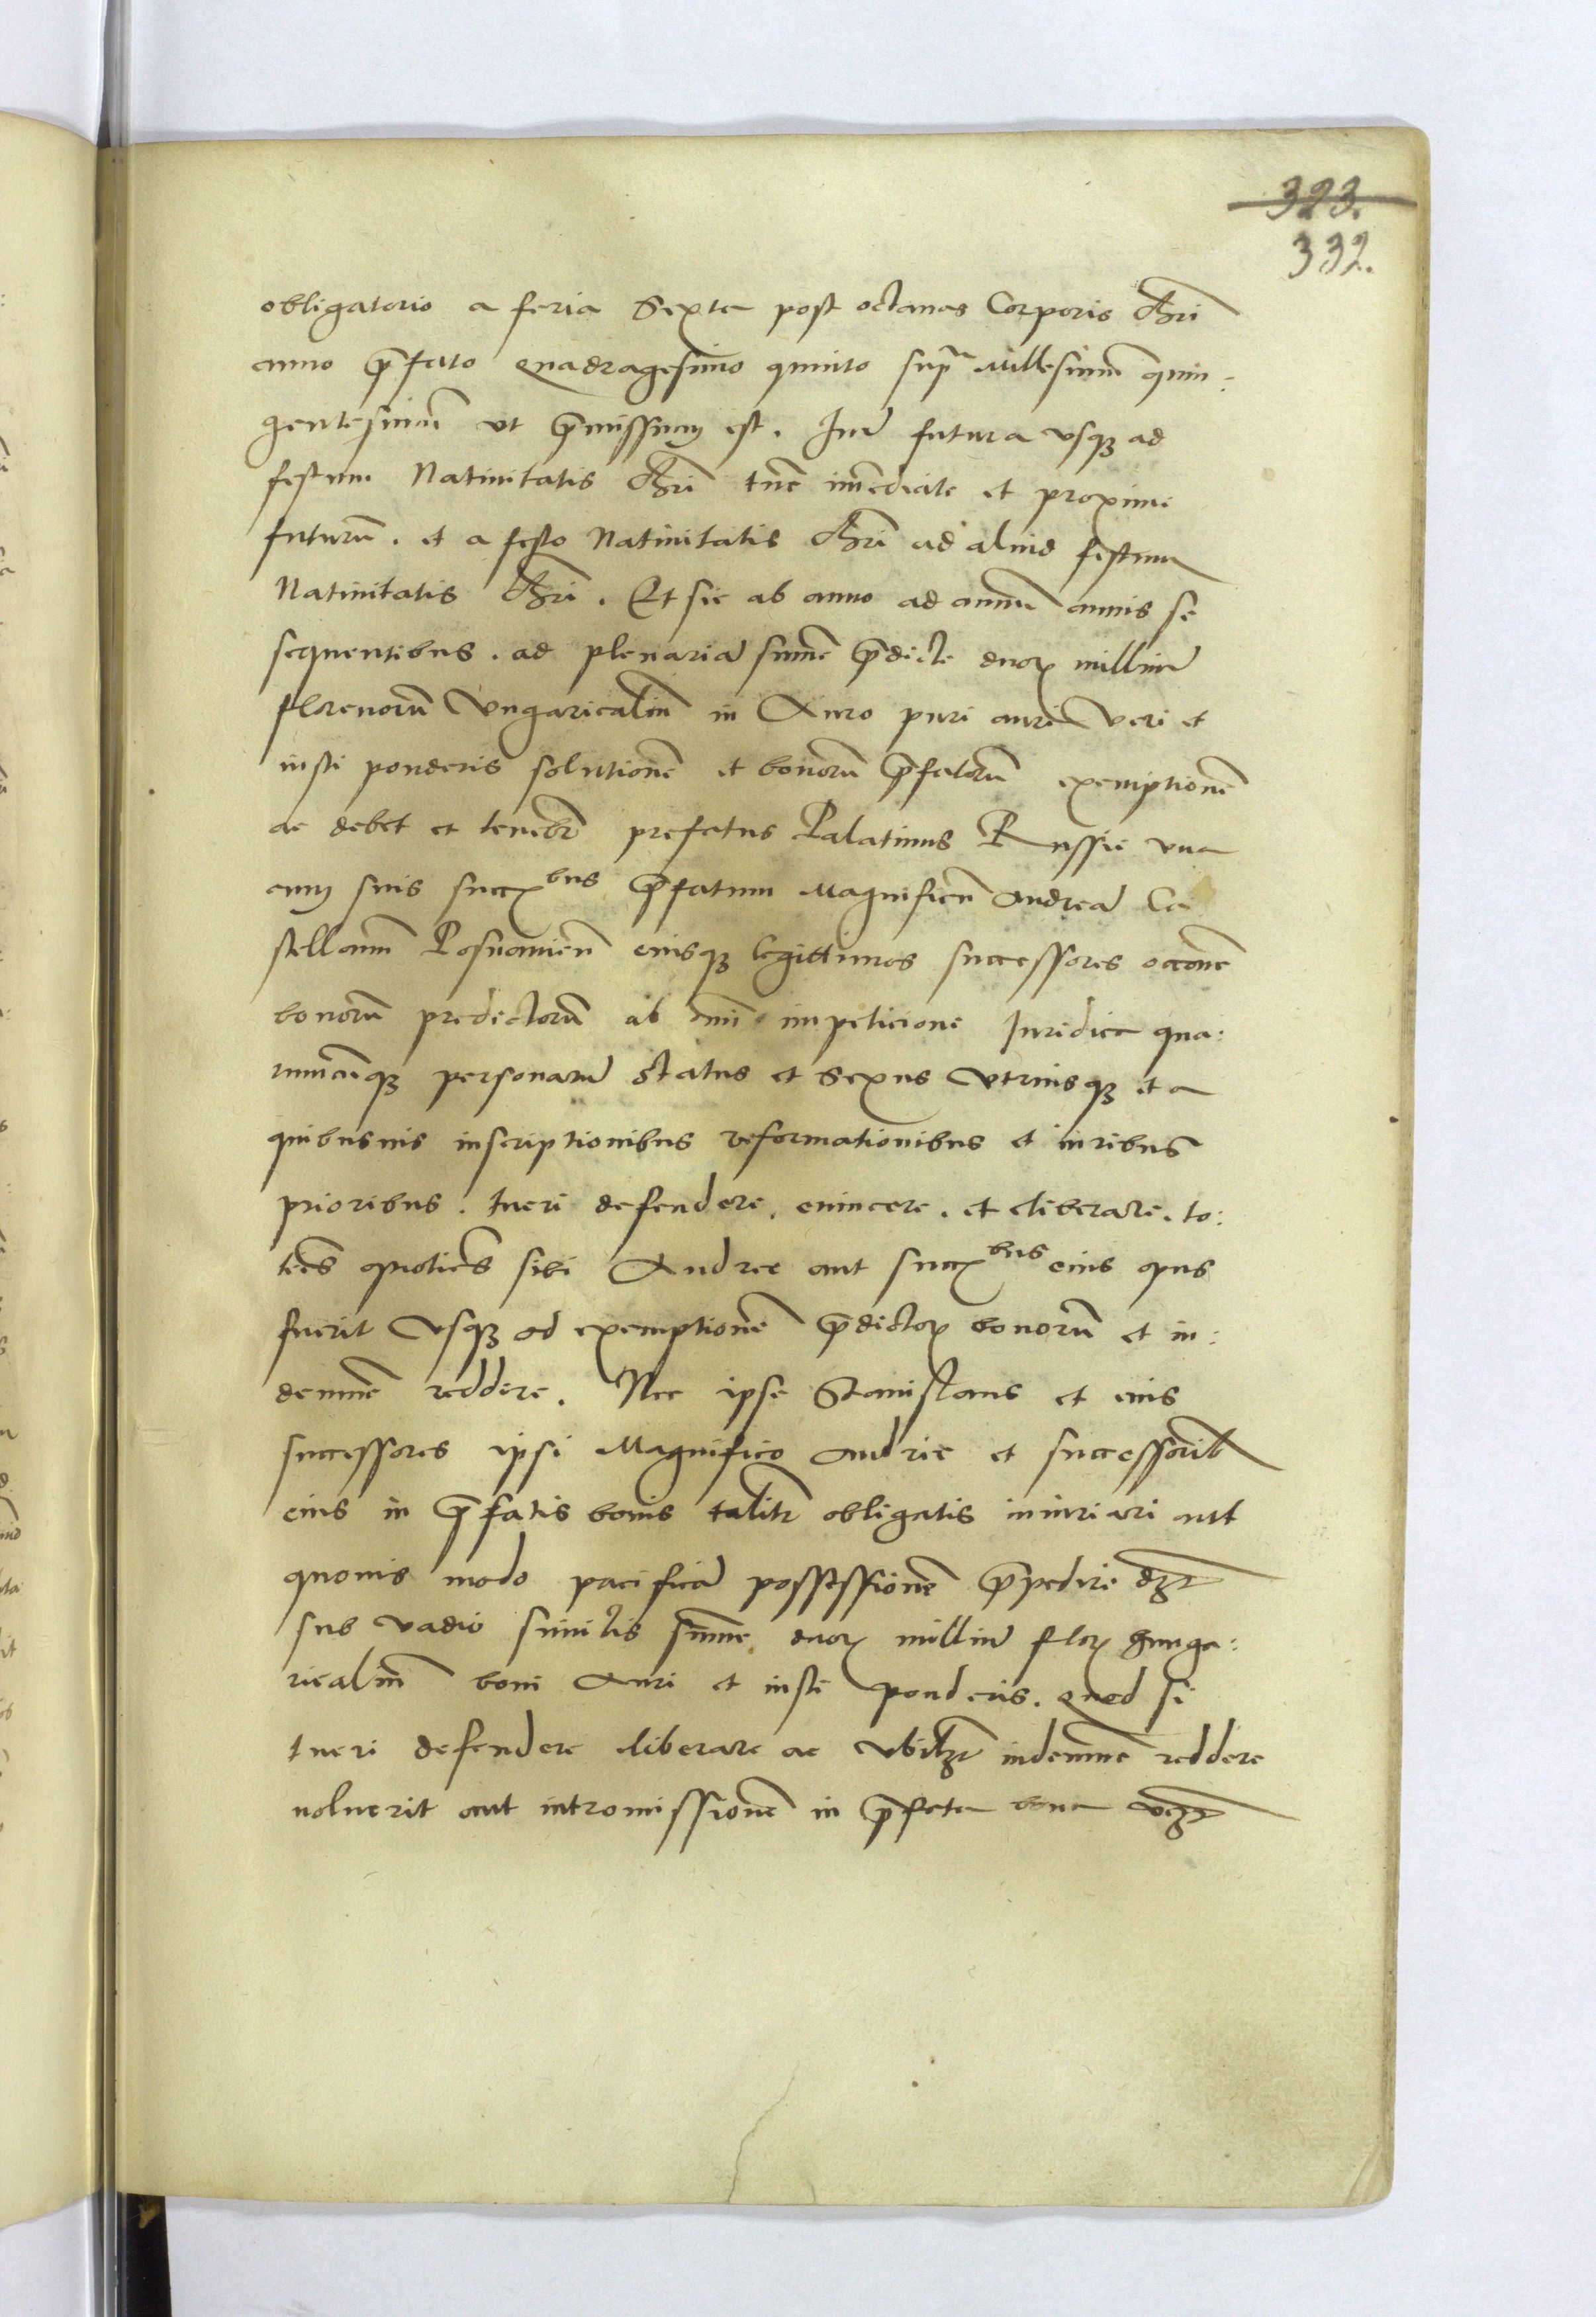 323.
332.
obligatorio a feria Sexta post octauas Corporis Chri
anno p̄fato Quadragesimo quinto supra Millesimum quin:
gentesimum vt p̄missum est. futura vsq₃ ad
festum Natiuitatis Chri tūc īmediate et proxime
futurū. et a festo Natiuitatis Chri ad aliud festum
Natiuitatis Chri. Et sic ab anno ad annū annis se
sequentibus. ad plenariā sum̄e p̄dicte duoꝝ milliū
florenorū Vngaricaliū in Auro puri auri Veri et
iusti ponderis solutionē et bonorū p̄fatorū exemptionē
ac debet et tenebr̄ prefatus Palatinus Russie vna
cum suis succꝝbus p̄fatum Magnificū Andreā Ca
stellanū Posnanien̄ eiusq₃ legittimos successores occōne
bonorū predictorū ab om̄i impeticione Iuridica qua:
rumcūq₃ personarū Status et Sexus Vtriusq₃ et a
quibusuis inscriptionibus reformationibus et iuribus
prioribus. tueri defendere. euincere. et liberare. to:
ties quoties sibi Andree aut succꝝbus eius opus
fuerit Vsq₃ ad exemptionē p̄dictoꝝ bonorū et in:
demnē reddere. Nec ipse Stanislaus et eius
successores ipsi Magnifico Andree et successorib
eius in p̄fatis bonis talitr̄ obligatis iniuriari aut
quouis modo pacificā possessionē p̄pedire
sub vadio similis sum̄e duoꝝ milliū floꝝ hunga:
ricaliū boni Auri et iusti ponderis. Quod si
tueri defendere liberare ac indemnē reddere
noluerit aut intromissionē in p̄fata bona